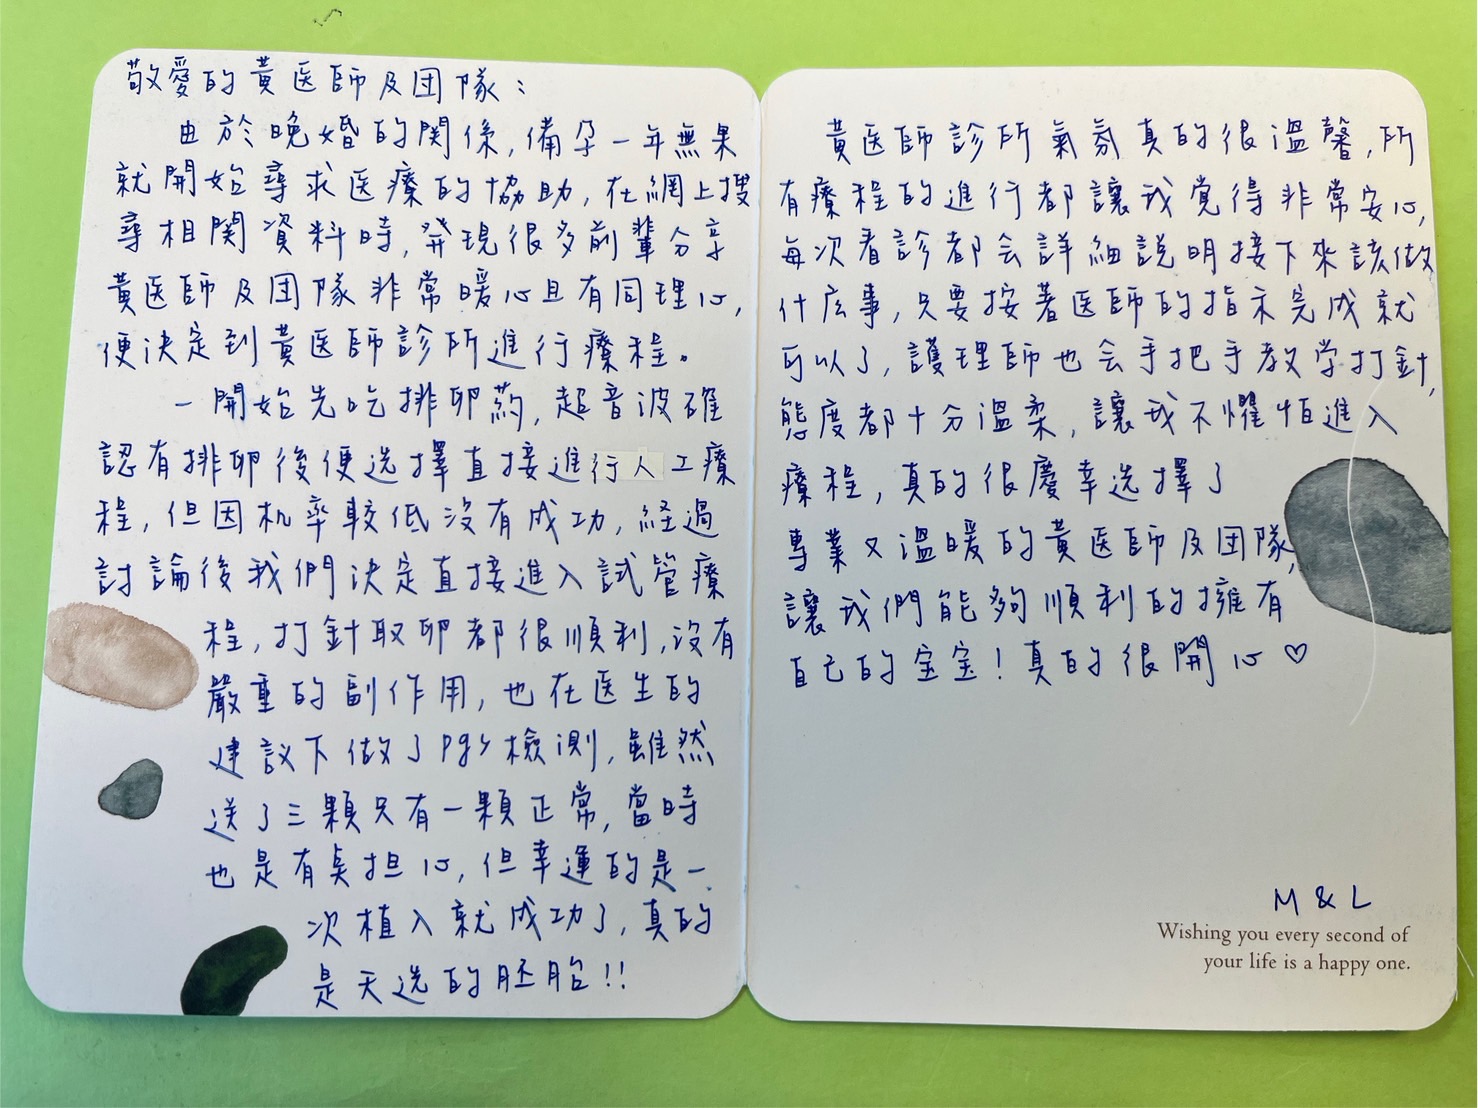 敬愛的黃医師及団隊：
由於晚婚的関係,備孕一年無果
就開始尋求医療的協助,在網上搜
尋相関資料時,発現很多前輩分享
黃医師及団隊非常暖心且有同理心,
便決定到黃医師診所進行療程。
一開始先吃排卵葯,超音波確
認有排卵後便选擇直接進行人工療
程,但因机率較低沒有成功,経過
討論後我們決定直接進入試管療
程,打針取卵都很順利,沒有
嚴重的副作用,也在医生的
建议下做了pgs檢測,雖然
送了三顆只有一顆正常,當時
也是有奌担心,但幸運的是一
次植入就成功了,真的
是天选的胚胎!!
黃医師診所氣氛真的很溫馨,所
有療程的進行都讓我覚得非常安心,
每次看診都会詳細說明接下來該做
什庅事,只要按著医師的指示完成就
可以了,護理師也会手把手教学打針,
態度都十分溫柔,讓我不懼怕進入
療程,真的很慶幸选擇了
專業又溫暖的黃医師及団隊,
讓我們能夠順利的擁有
自己的宝宝!真的很開心♡
M & L
Wishing you every second of
your life is a happy one.